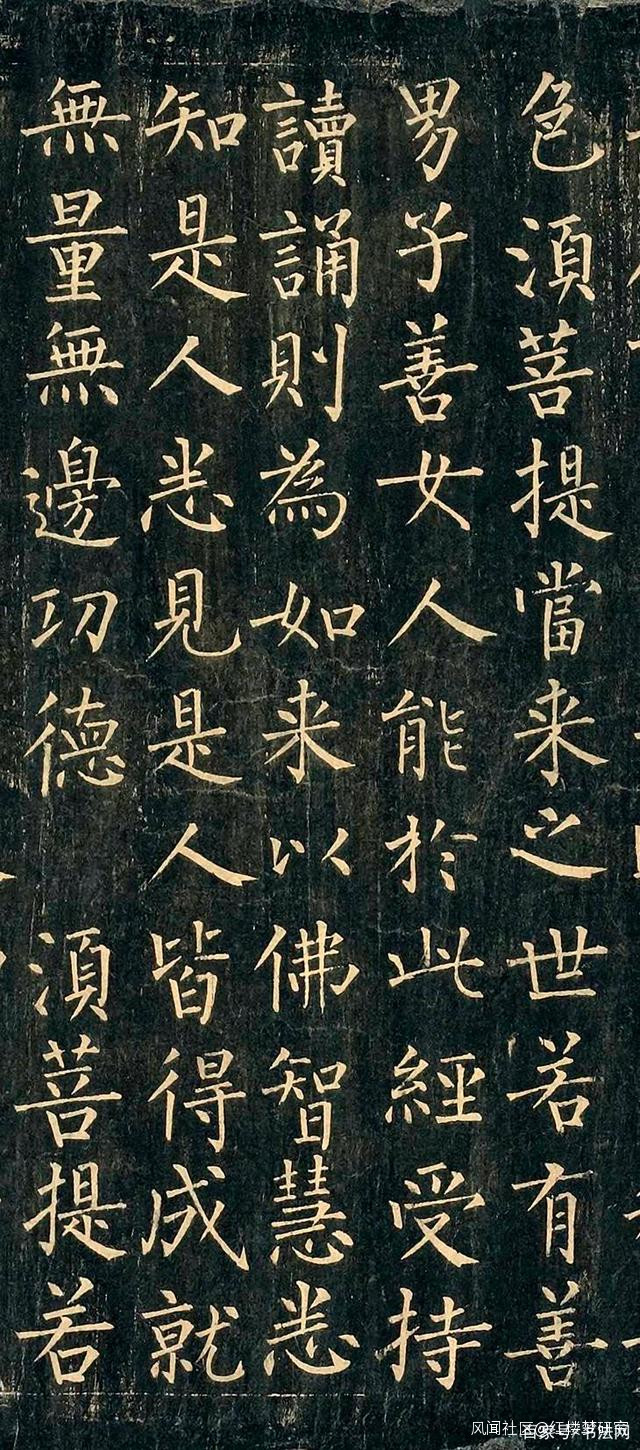 色湏菩提當来之世若有善
男子善女人能於此經受持
讀誦則為如来以佛智慧悉
知是人悉見是人皆得成就
無量無邊功德 湏菩提若
风闻社区@红楼梦研究
百家号/书法网